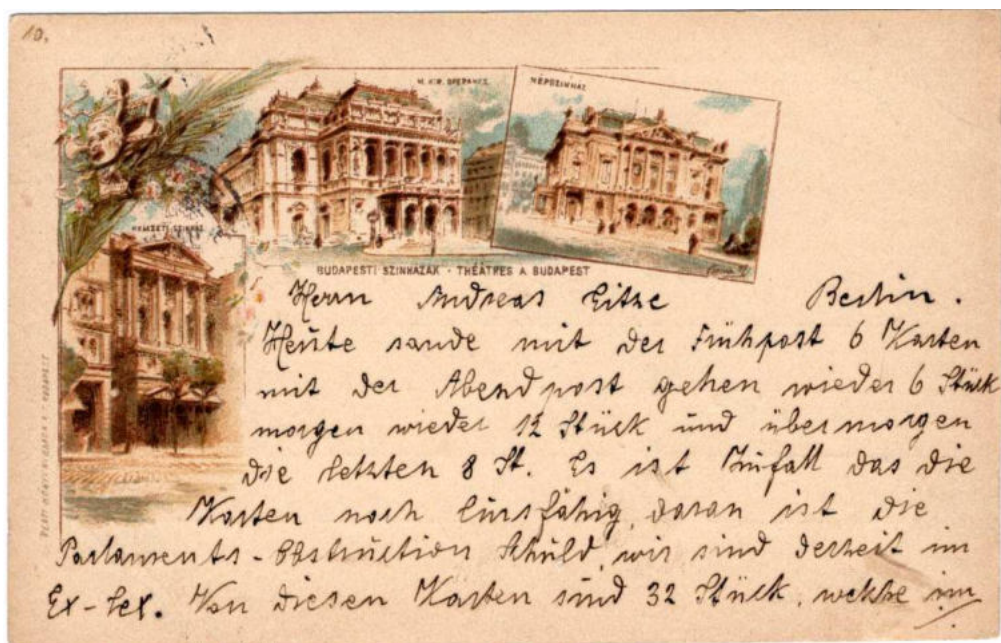 10.
M. KIR. OPERAHÁZ
NÉPSZINHÁZ
NEMZETI SZINHÁZ
BUDAPESTI SZINHÁZAK · THÉATRES A BUDAPEST
Herrn Andreas Eitze Berlin.
Heute sande mit der Frühpost 6 Karten
mit der Abendpost gehen wieder 6 Stück
morgen wieder 12 Stück und übermorgen
die letzten 8 St. Es ist Zufall das die
Karten noch kursfähig, daran ist die
Parlaments-Obstruction Schuld, wir sind derzeit im
Ex-lex. Von diesen Karten sind 32 Stück, welche im